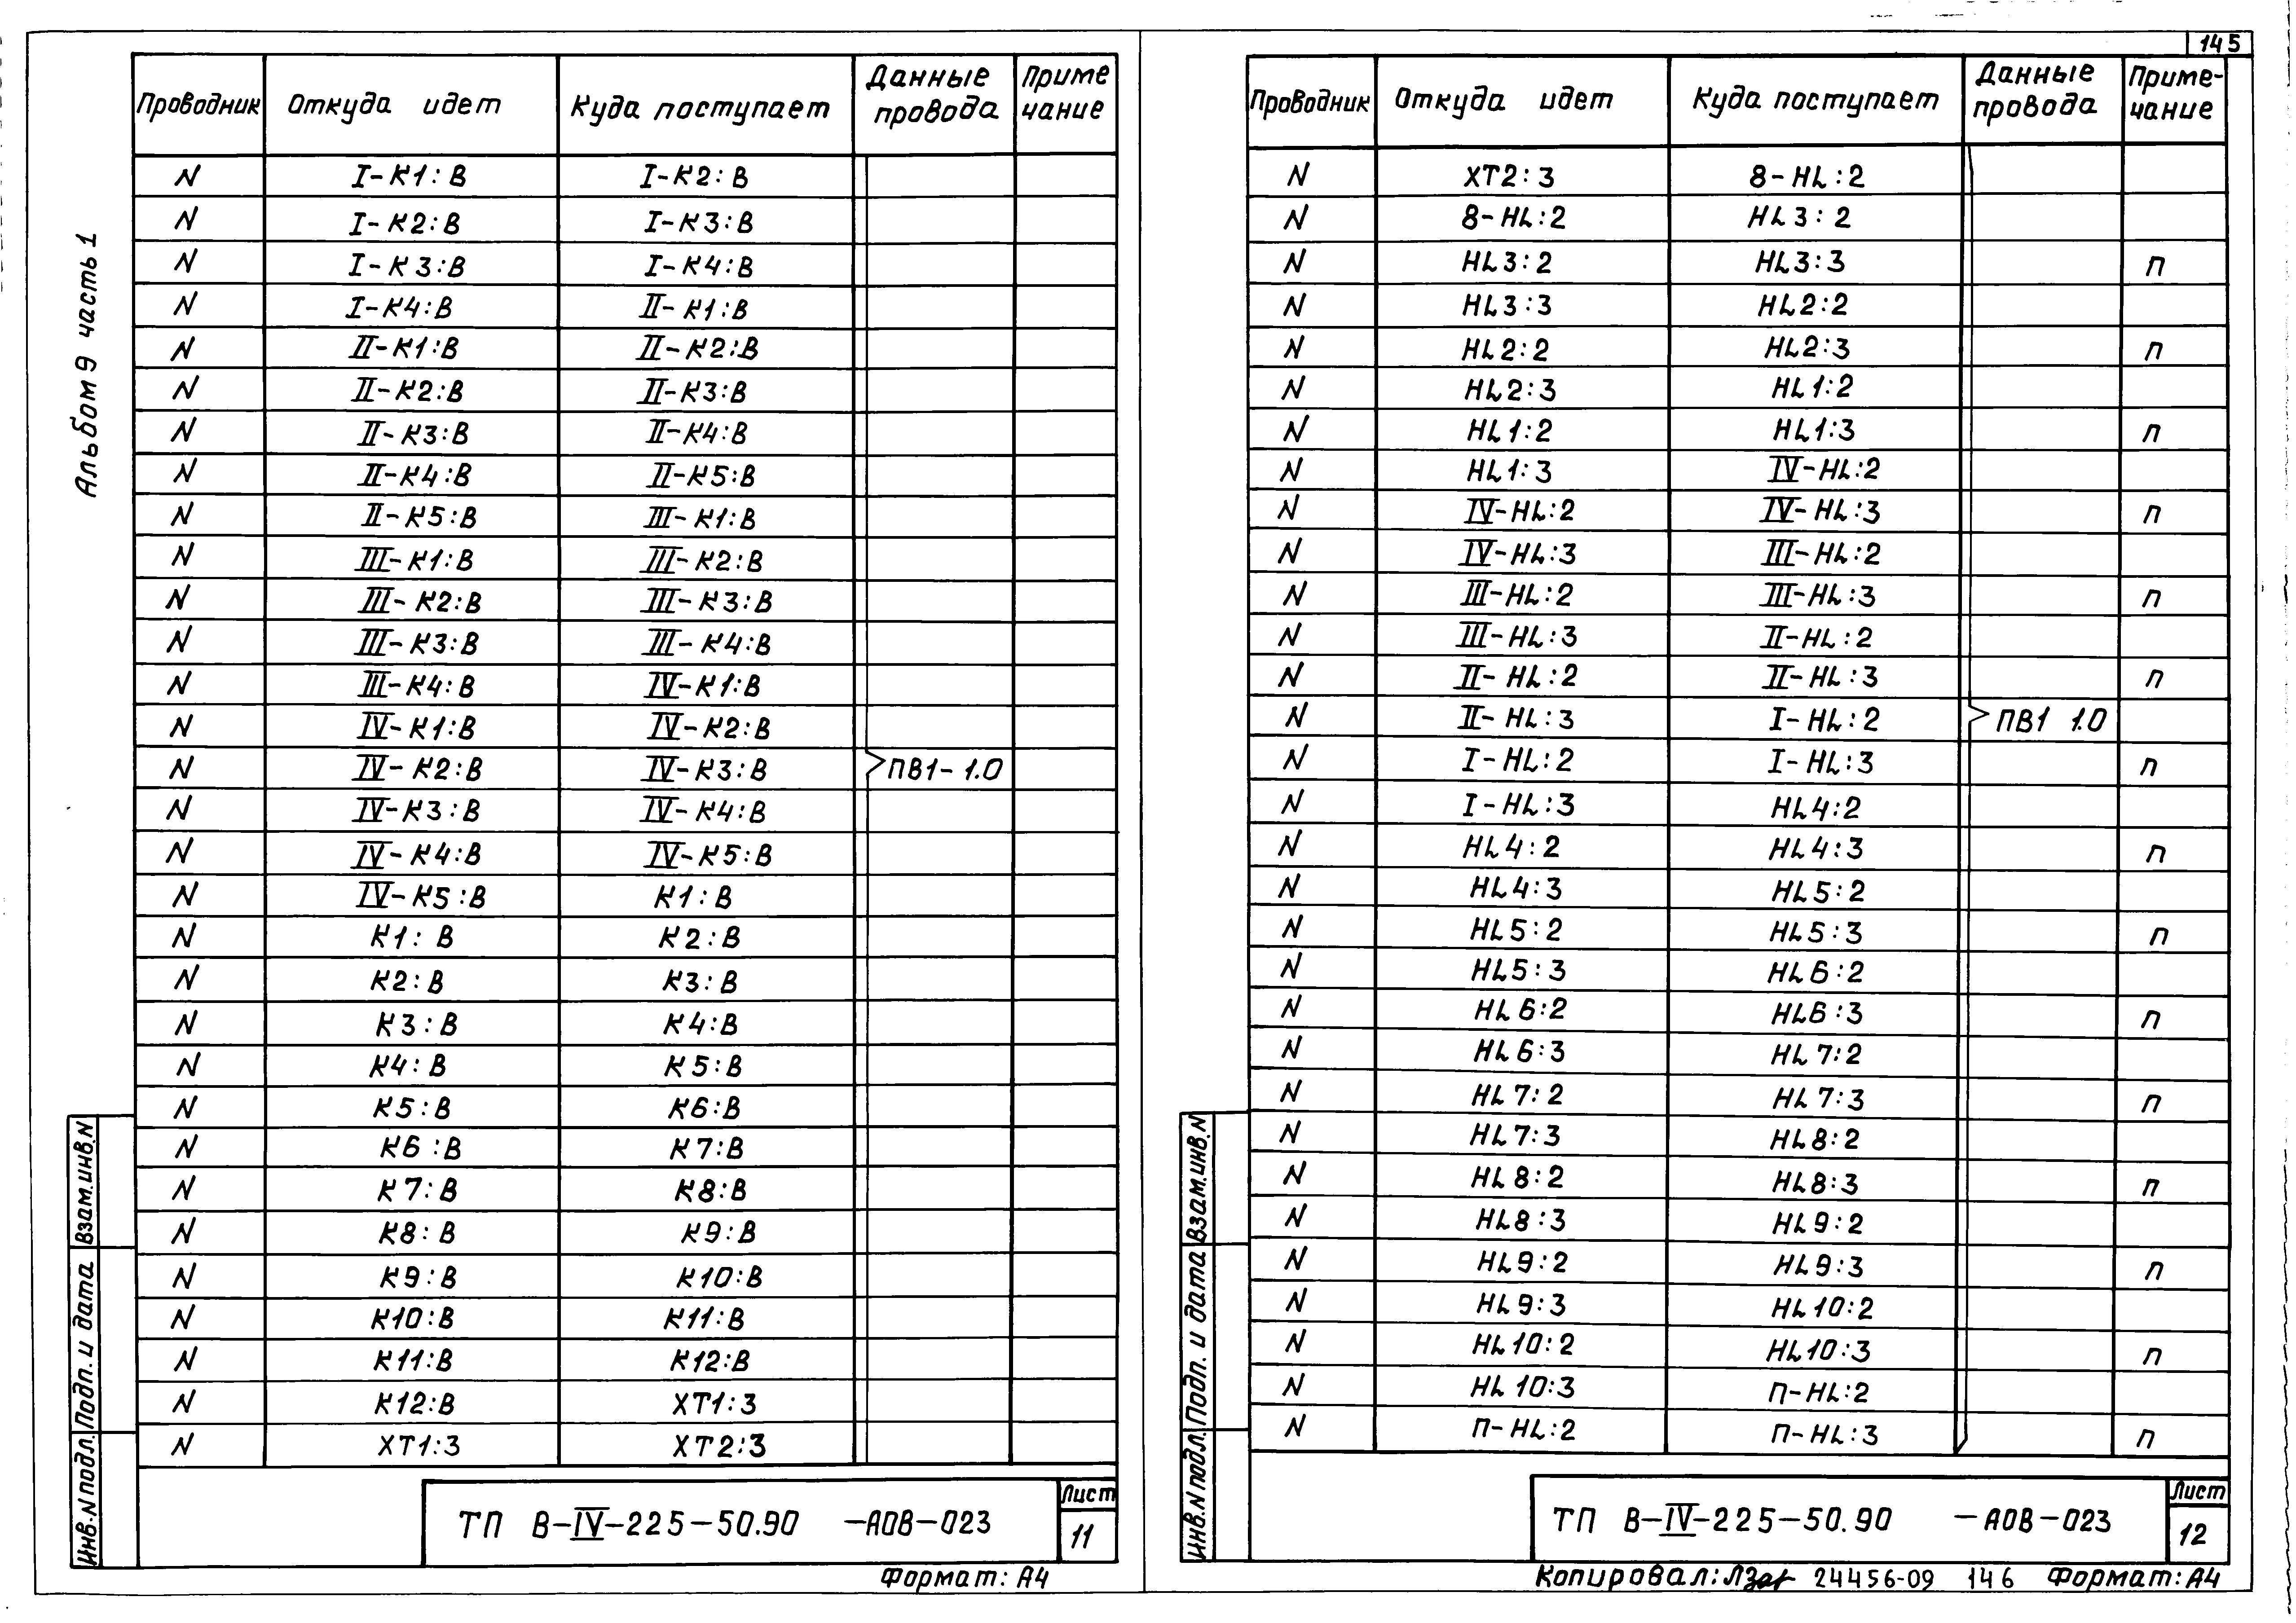 145
Альбом 9 часть 1
Проводник Откуда идет Куда поступает Данные провода Приме чание
N I-К1:В I-К2:В
N I-К2:В I-К3:В
N I-К3:В I-К4:В
N I-К4:В II-К1:В
N II-К1:В II-К2:В
N II-К2:В II-К3:В
N II-К3:В II-К4:В
N II-К4:В II-К5:В
N II-К5:В III-К1:В
N III-К1:В III-К2:В
N III-К2:В III-К3:В
N III-К3:В III-К4:В
N III-К4:В IV-К1:В
N IV-К1:В IV-К2:В
N IV-К2:В IV-К3:В ПВ1-1.0
N IV-К3:В IV-К4:В
N IV-К4:В IV-К5:В
N IV-К5:В К1:В
N К1:В К2:В
N К2:В К3:В
N К3:В К4:В
N К4:В К5:В
N К5:В К6:В
N К6:В К7:В
N К7:В К8:В
N К8:В К9:В
N К9:В К10:В
N К10:В К11:В
N К11:В К12:В
N К12:В ХТ1:3
N ХТ1:3 ХТ2:3
Взам.инв.N
Подп. и дата
Инв.N подл.
ТП В-IV-225-50.90 -АОВ-023
Лист
11
Формат: А4
Проводник Откуда идет Куда поступает Данные провода Приме-чание
N ХТ2:3 8-HL:2
N 8-HL:2 HL3:2
N HL3:2 HL3:3 П
N HL3:3 HL2:2
N HL2:2 HL2:3 П
N HL2:3 HL1:2
N HL1:2 HL1:3 П
N HL1:3 IV-HL:2
N IV-HL:2 IV-HL:3 П
N IV-HL:3 III-HL:2
N III-HL:2 III-HL:3 П
N III-HL:3 II-HL:2
N II-HL:2 II-HL:3 П
N II-HL:3 I-HL:2 ПВ1 1.0
N I-HL:2 I-HL:3 П
N I-HL:3 HL4:2
N HL4:2 HL4:3 П
N HL4:3 HL5:2
N HL5:2 HL5:3 П
N HL5:3 HL6:2
N HL6:2 HL6:3 П
N HL6:3 HL7:2
N HL7:2 HL7:3 П
N HL7:3 HL8:2
N HL8:2 HL8:3 П
N HL8:3 HL9:2
N HL9:2 HL9:3 П
N HL9:3 HL10:2
N HL10:2 HL10:3 П
N HL10:3 П-HL:2
N П-HL:2 П-HL:3 П
Взам.инв.N
Подп. и дата
Инв.N подл.
ТП В-IV-225-50.90 -АОВ-023
Лист
12
Копировал: 24456-09 146 Формат: А4